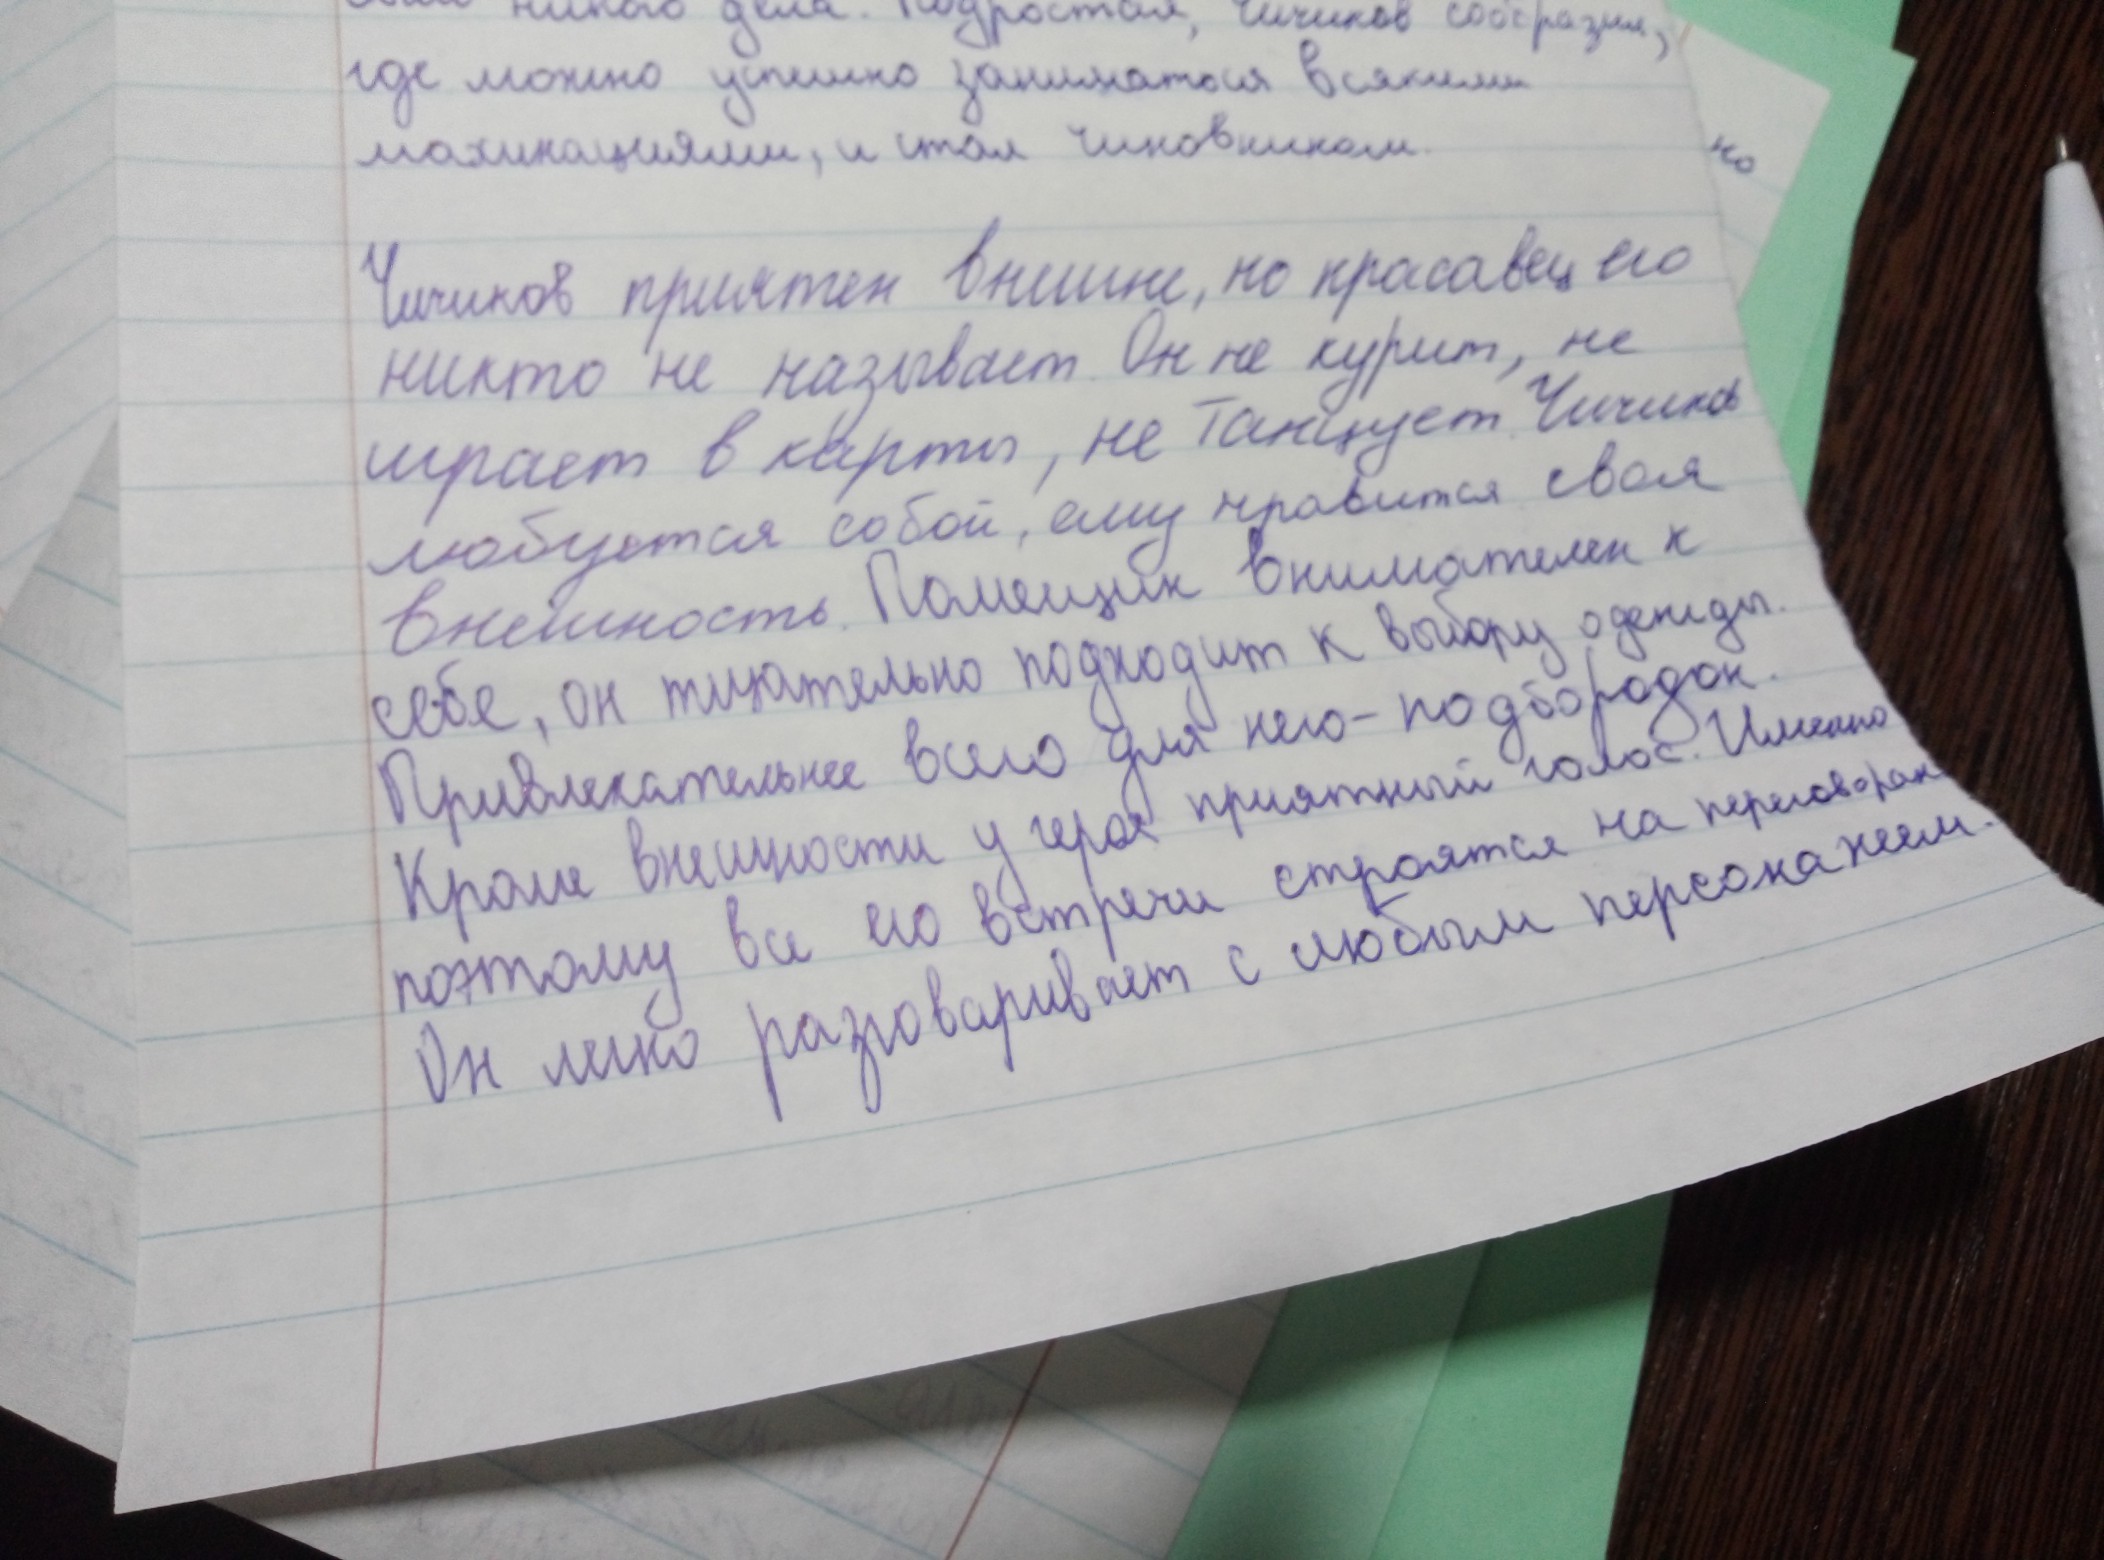 никого дела. Подростая, Чичиков сообразил,
где можно успешно заниматься всякими
махинациями, и стал чиновником.
но
Чичиков приятен внешне, но красавец его
никто не называет. Он не курит, не
играет в карты, не танцует. Чичиков
любуется собой, ему нравится своя
внешность. Помещик внимателен к
себе, он тщательно подходит к выбору одежды.
Привлекательнее всего для него - подбородок.
Кроме внешности у героя приятный голос. Именно
поэтому все его встречи строятся на переговорах
Он легко разговаривает с любым персонажеем.